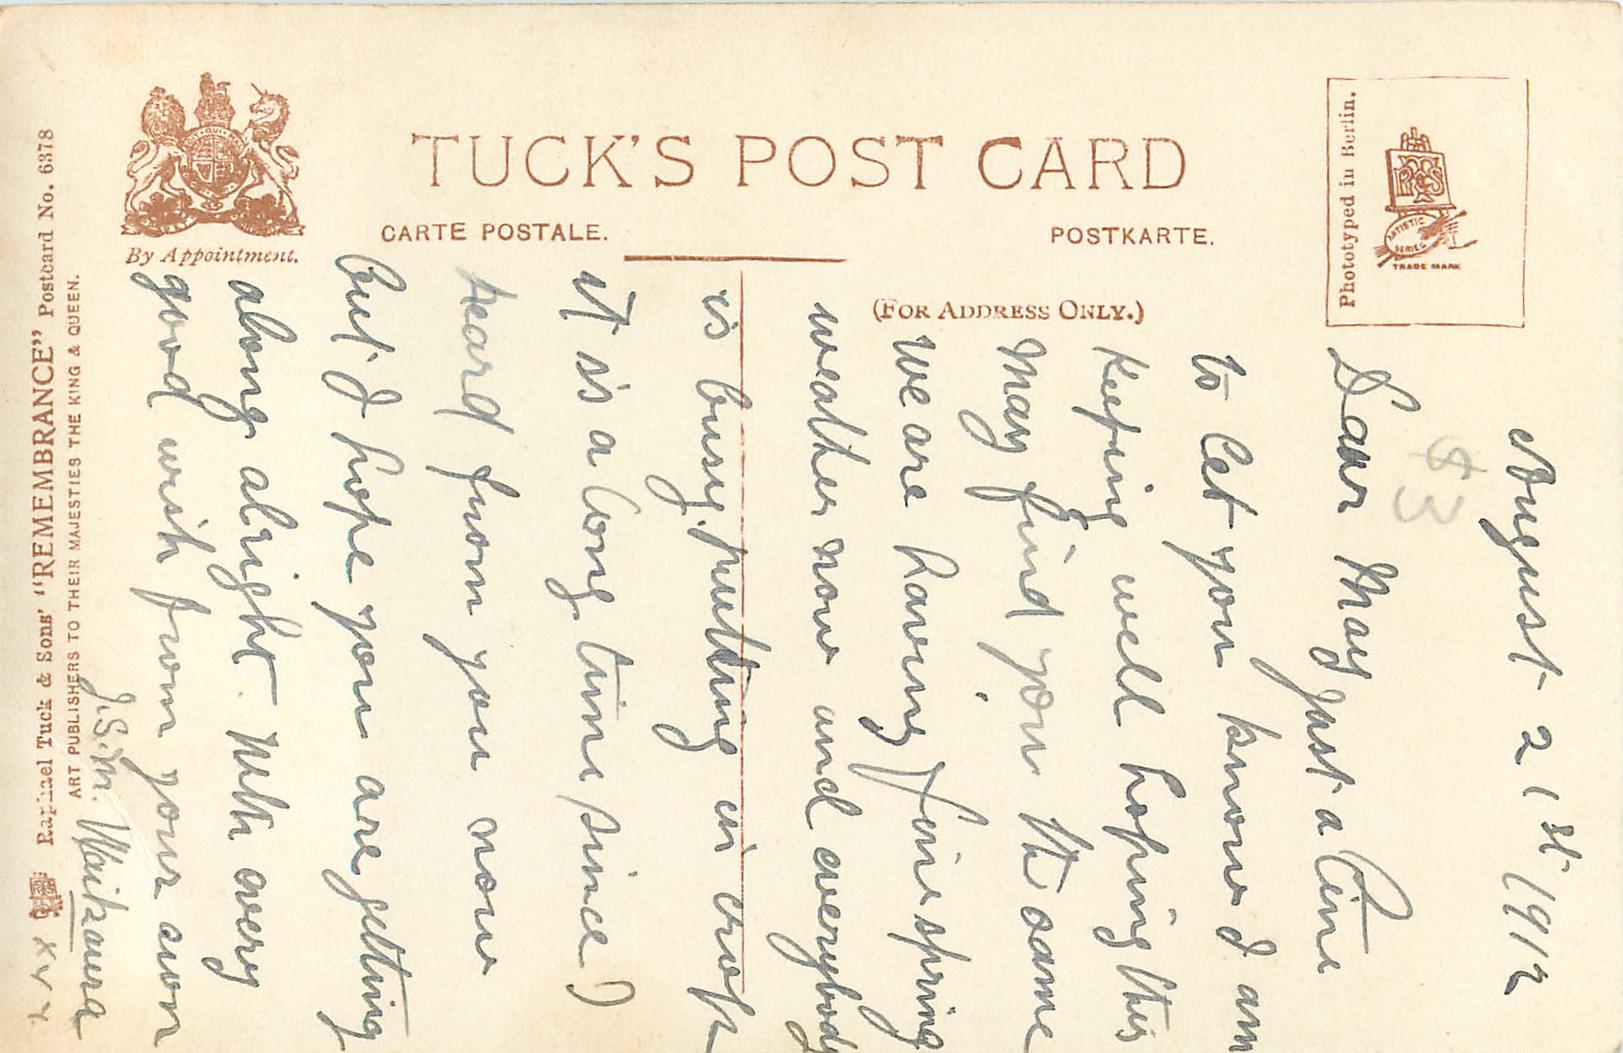 TUCK'S POST CARD
CARTE POSTALE.
POSTKARTE.
(FOR ADDRESS ONLY.)
By Appointment.
Phototyped in Berlin.
ARTISTIC SERIES
TRADE MARK
Raphael Tuck & Sons' "REMEMBRANCE" Postcard No. 6378
ART PUBLISHERS TO THEIR MAJESTIES THE KING & QUEEN.
$3
August 21st 1912
Dear May Just a line
to let you know I am
keeping well hoping this
may find you the same
We are having fine spring
weather now and everybody
is busy putting in crop
it is a long time since I
heard from you now
but I hope you are getting
along alright. With every
good wish from your
J.S.M. Waikaura